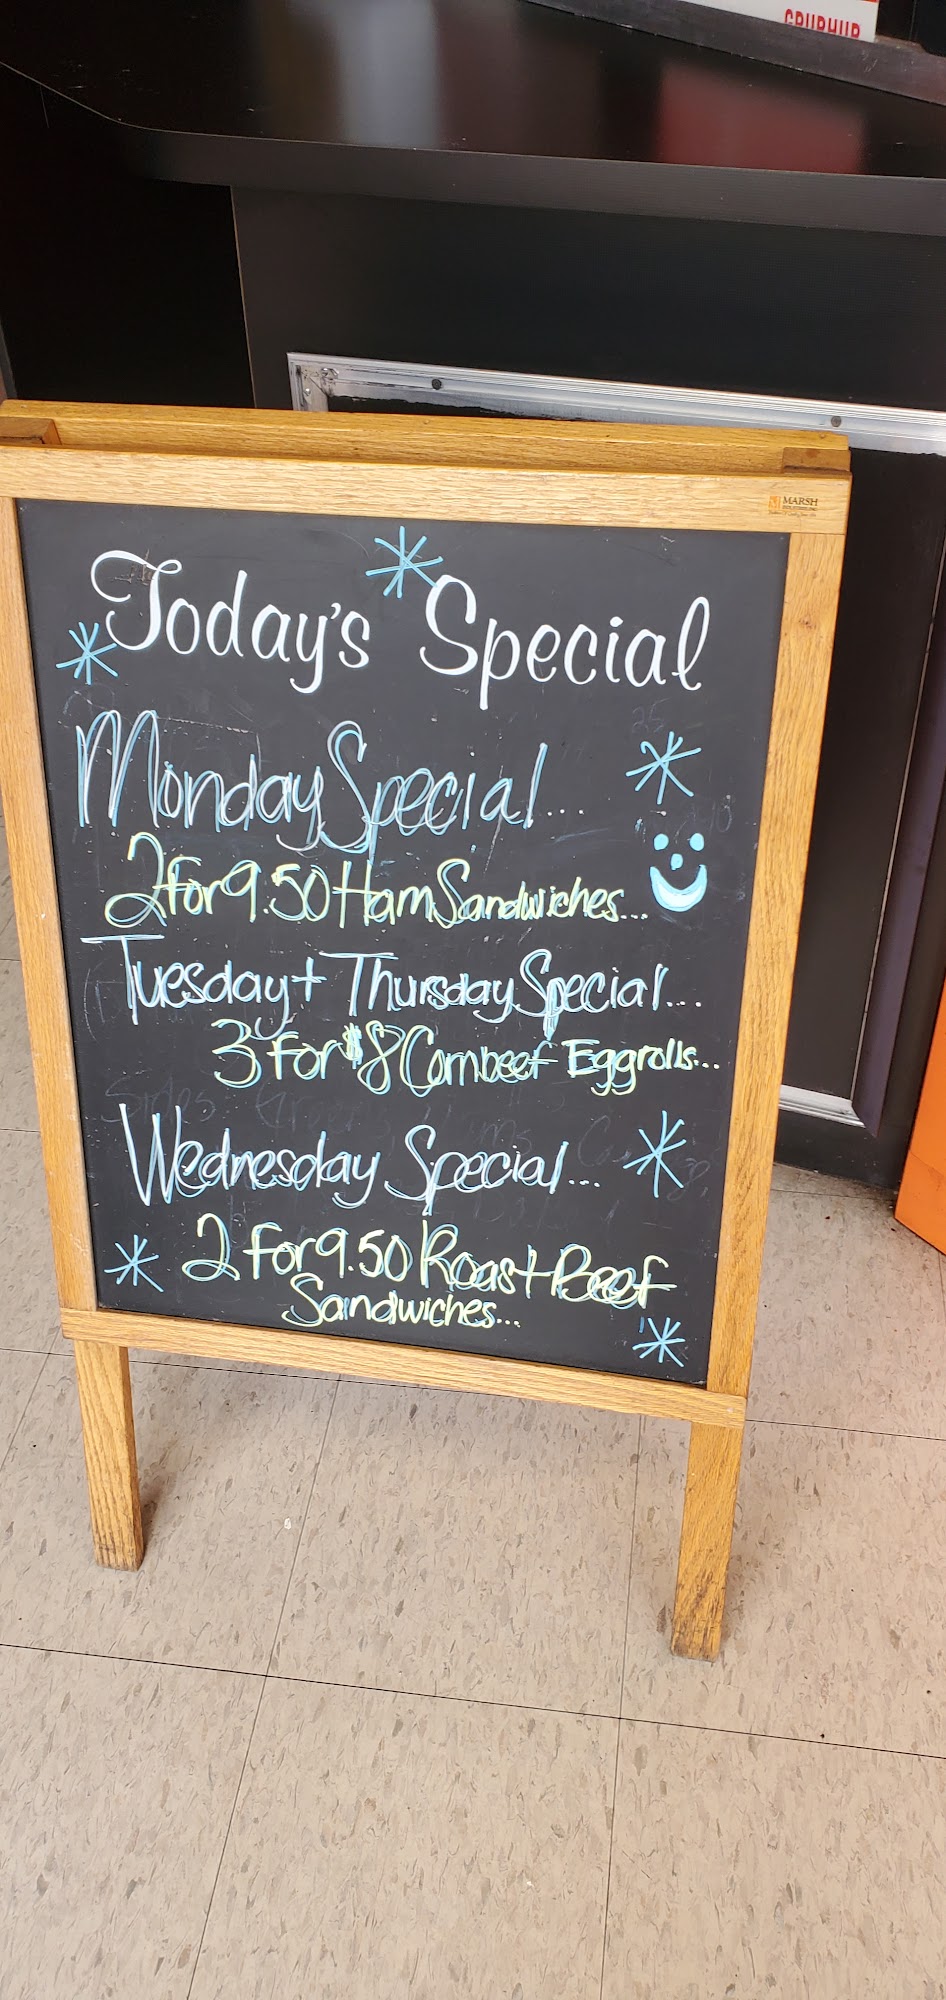 GRUBHUB
MARSH
Today's Special
Monday Special...
2 for 9.50 Ham Sandwiches...
Tuesday + Thursday Special...
3 for $8 Cornbeef Eggrolls...
Wednesday Special...
2 for 9.50 Roast Beef
Sandwiches...